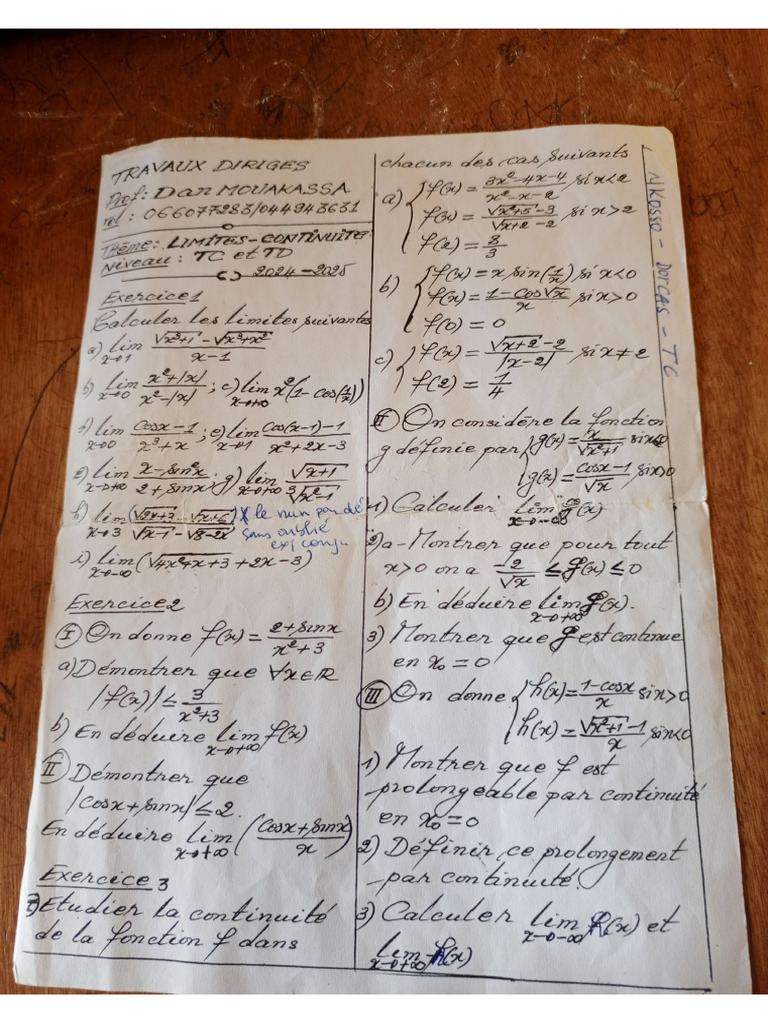 TRAVAUX DIRIGES
Prof: Dan MOUAKASSA
Tel: 066077283/044943631
Thème: LIMITES-CONTINUITE
Niveau: TC et TD
2024-2025
Exercice1
Calculer les limites suivantes
a) lim x→1 (√(x³+1) - √(x³+x²))/(x-1)
b) lim x→0 (x²+|x|)/(x²-|x|) ; c) lim x→+∞ x²(1-cos(1/x))
lim x→0 (cosx-1)/(x³+x) ; e) lim x→1 (cos(x-1)-1)/(x²+2x-3)
lim x→+∞ (x-sin²x)/(2+sinx) ; g) lim x→+∞ √(x+1)/∛(x²-1)
h) lim x→3 (√(2x+3) - √(x+6))/(√(x-1) - √(8-2x)) le num par dé
sans oublié
exp conju
i) lim x→-∞ (√(4x²+x+3) +2x-3)
Exercice2
I On donne f(x) = (2+sinx)/(x²+3)
a) Démontrer que ∀x∈R
|f(x)| ≤ 3/(x²+3)
b) En déduire lim x→+∞ f(x)
II Démontrer que
|cosx+sinx| ≤ 2.
En déduire lim x→+∞ ((cosx+sinx)/x)
Exercice 3
I) Etudier la continuité
de la fonction f dans
chacun des cas suivants
a) { f(x) = (3x²-4x-4)/(x²-x-2) si x<2
f(x) = (√(x²+5) -3)/(√(x+2) -2) si x>2
f(2) = 8/3
b) { f(x) = x sin(1/x) si x<0
f(x) = (1-cos√x)/x si x>0
f(0) = 0
c) { f(x) = (√(x+2) -2)/|x-2| si x≠2
f(2) = 1/4
II On considère la fonction
g définie par { g(x) = x/√(x²+1) si x≤0
g(x) = (cosx-1)/√x si x>0
1) Calculer lim x→-∞ g(x)
2) a- Montrer que pour tout
x>0 on a -2/√x ≤ g(x) ≤ 0
b) En déduire lim x→+∞ g(x).
3) Montrer que g est continue
en x₀ = 0
III On donne { h(x) = (1-cosx)/x si x>0
h(x) = (√(x²+1) -1)/x si x<0
1) Montrer que f est
prolongeable par continuité
en x₀ = 0
2) Définir ce prolongement
par continuité.
3) Calculer lim x→-∞ h(x) et
lim x→+∞ h(x)
NKOSSO - DORCAS - TC